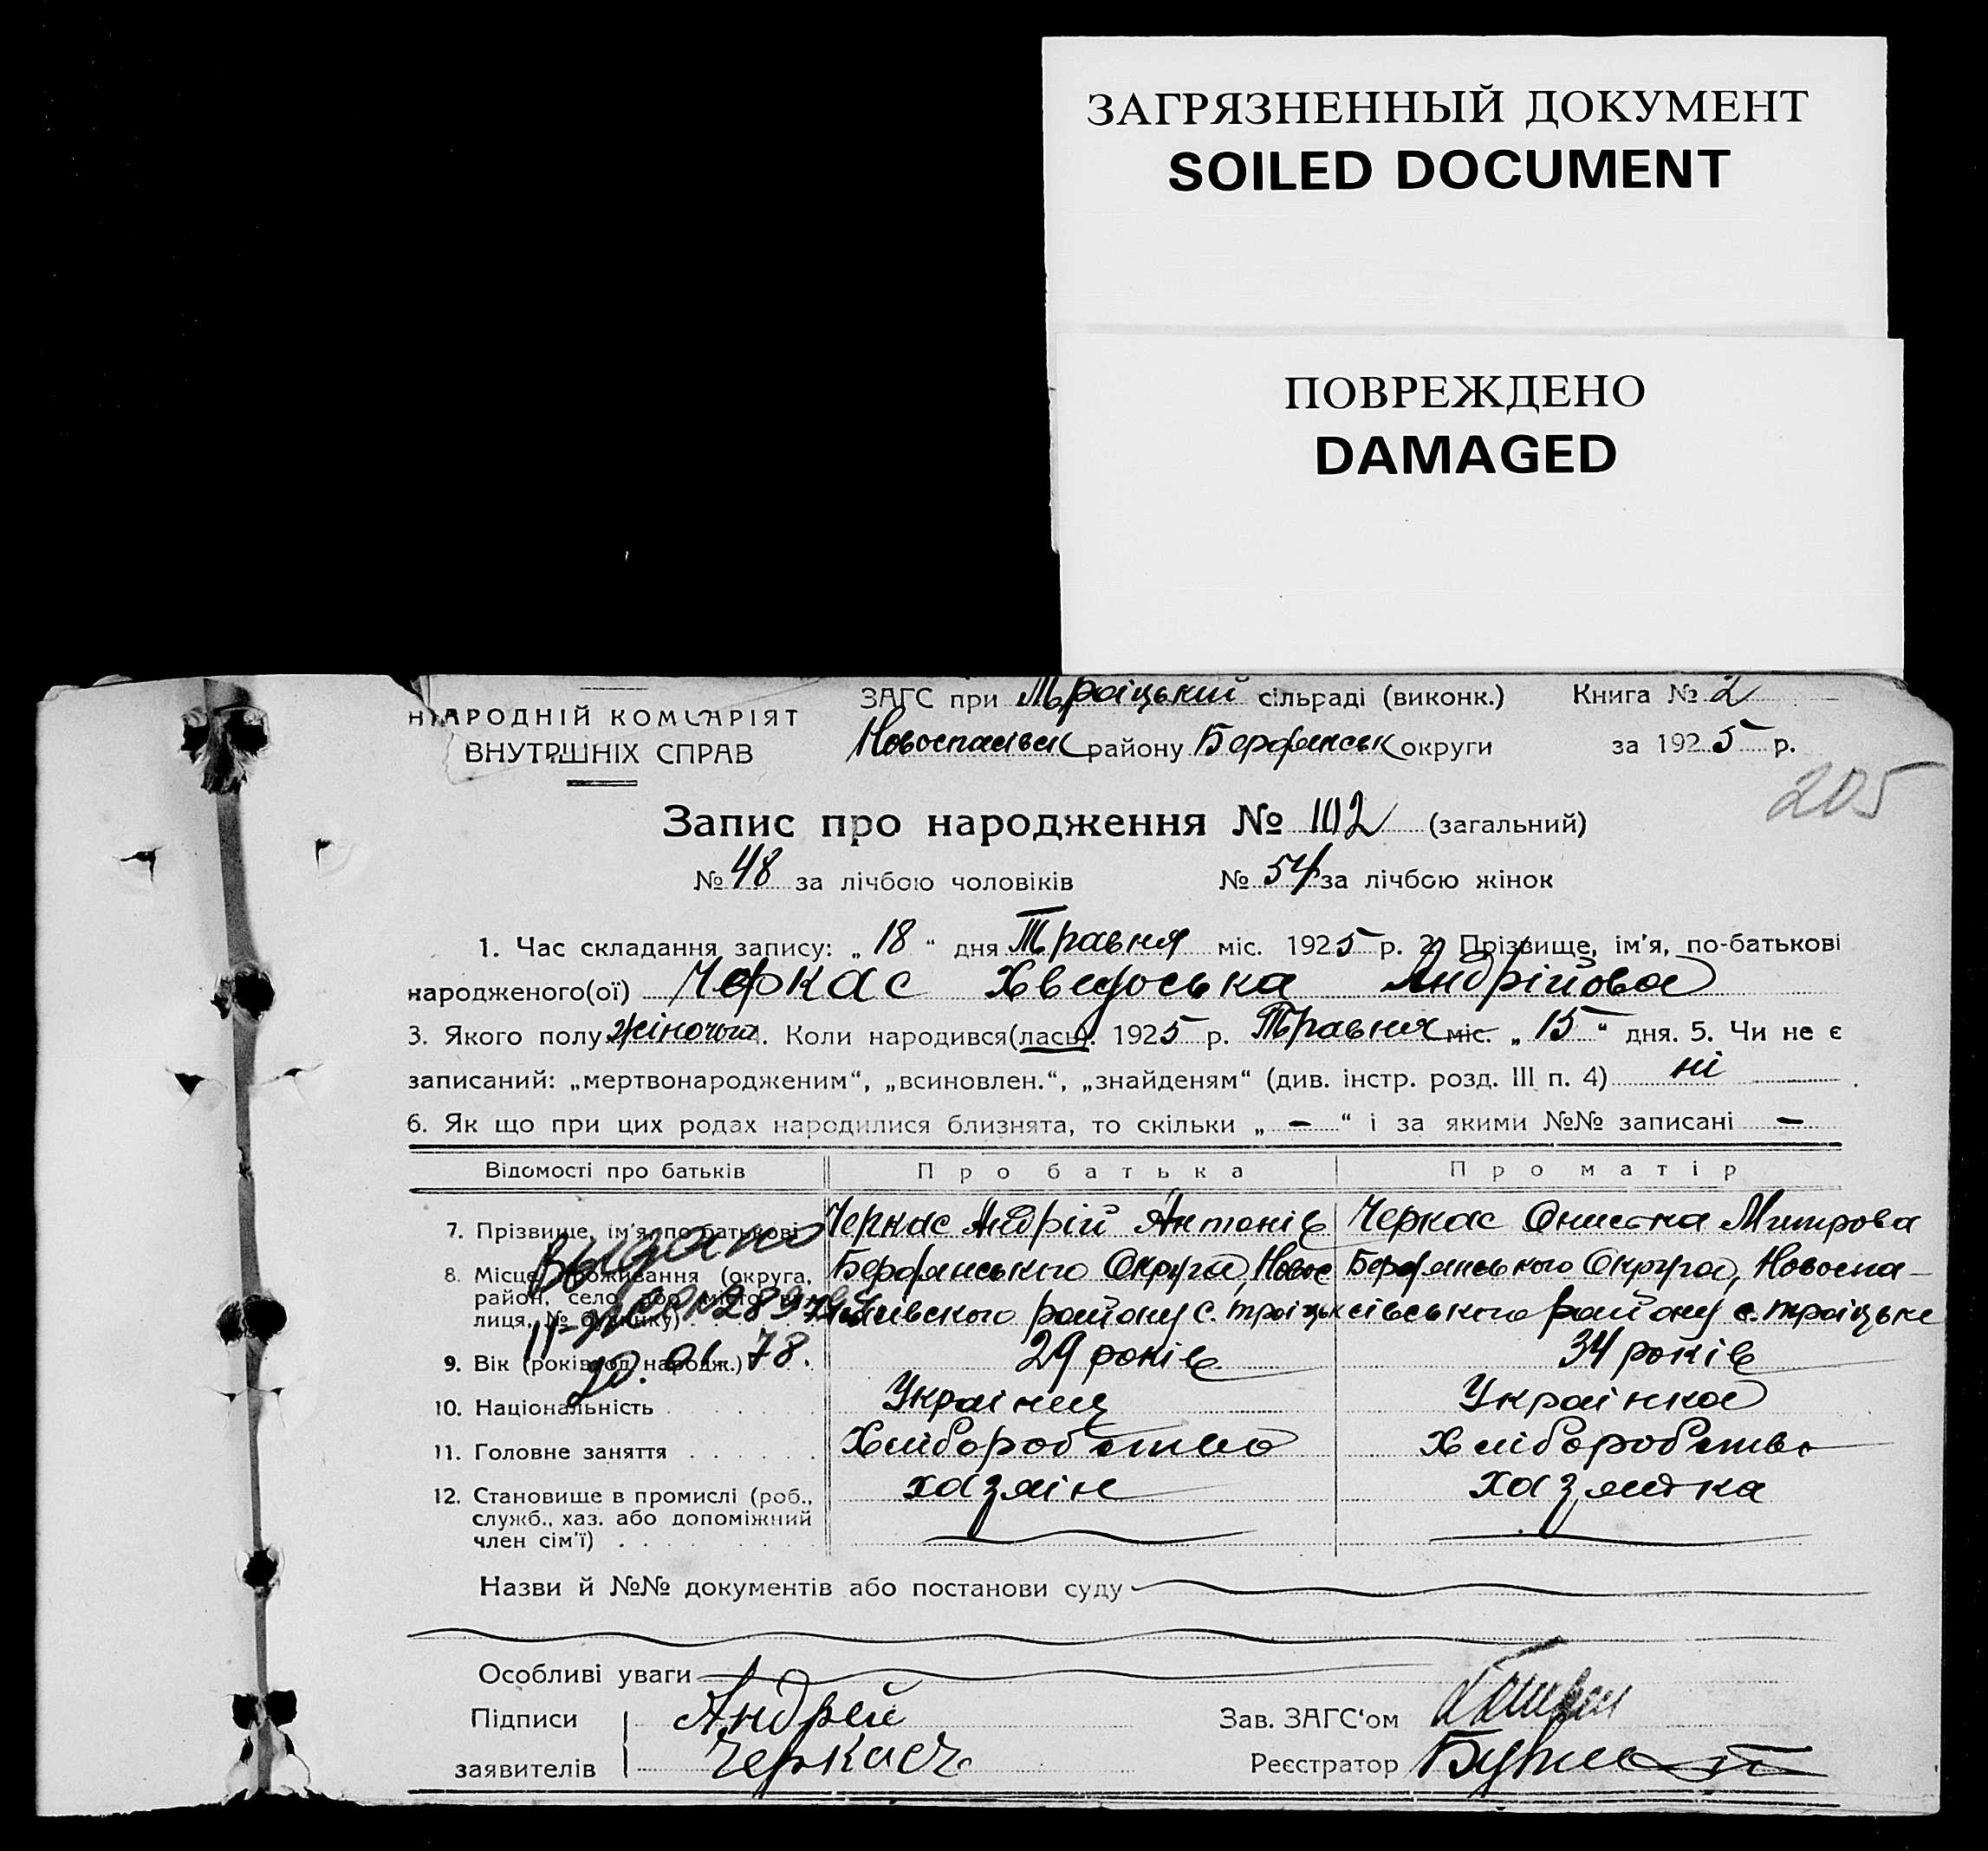 ЗАГРЯЗНЕННЫЙ ДОКУМЕНТ
SOILED DOCUMENT
ПОВРЕЖДЕНО
DAMAGED
НАРОДНІЙ КОМІСАРІЯТ
ВНУТРІШНІХ СПРАВ
ЗАГС при Троіцький сільраді (виконк.) Книга № 2
Новоспасівськ району Бердянськ округи за 1925 р.
205
Запис про народження № 102 (загальний)
№ 48 за лічбою чоловіків № 54 за лічбою жінок
1. Час складання запису: „ 18 “ дня Травня міс. 1925 р. 2. Прізвище, ім'я, по-батькові
народженого(ої) Черкас Хведоська Андрійова
3. Якого полу жіночого. Коли народився(лась). 1925 р. Травня міс. „ 15 “ дня. 5. Чи не є
записаний: „мертвонародженим“, „всиновлен.“, „знайденям“ (див. інстр. розд. III п. 4) ні
6. Як що при цих родах народилися близнята, то скільки „ — “ і за якими №№ записані —
Відомості про батьків Про батька Про матір
7. Прізвище, ім'я, по батькові Черкас Андрій Антонів Черкас Онистка Митрова
Выдано
8. Місце проживання (округа, Бердянського Округа, Новос Бердянського Округа, Новоспа-
район, село або місто, ву-
лиця, № будинку) пасивского району с. Троіцьк сівського району с. Троіцьке
9. Вік (років од народж.) 29 років 34 років
20.01.78.
10. Національність Українець Українка
11. Головне заняття Хліборобство Хліборобство
12. Становище в промислі (роб., хазяін хазяйка
служб., хаз. або допоміжний
член сім'ї)
Назви й №№ документів або постанови суду
Особливі уваги
Підписи Андрей Зав. ЗАГС'ом
заявителів Черкас Реєстратор